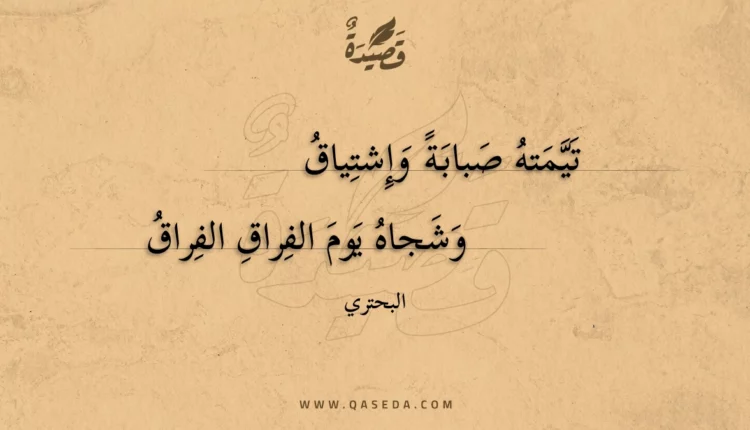 قَصِيدَةٌ
تَيَّمَتهُ صَبابَةً وَإِشتِياقُ
وَشَجاهُ يَومَ الفِراقِ الفِراقُ
البحتري
WWW.QASEDA.COM